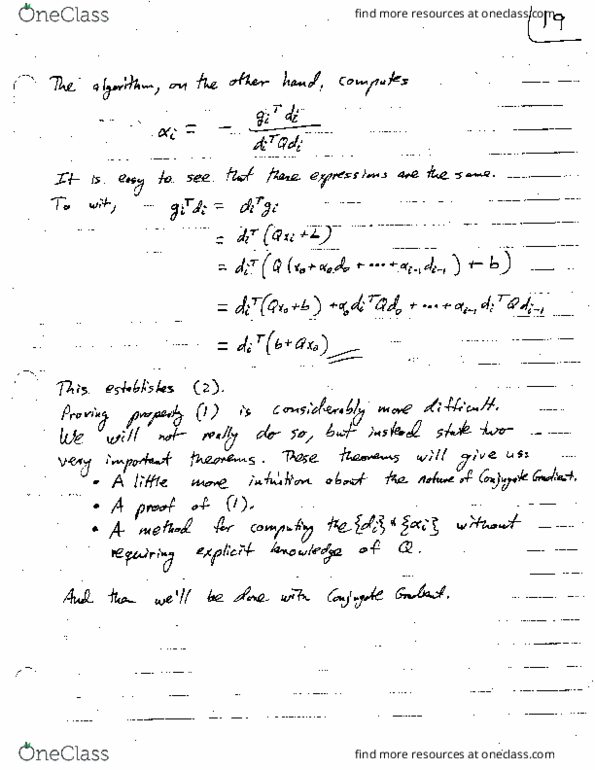 OneClass
find more resources at oneclass.com
19
The algorithm, on the other hand, computes
αi = - giᵀdi / diᵀQdi
It is easy to see that these expressions are the same.
To wit, giᵀdi = diᵀgi
= diᵀ(Qxi + b)
= diᵀ(Q(x₀ + α₀d₀ + ··· + αi-1 di-1) + b)
= diᵀ(Qx₀ + b) + α₀diᵀQd₀ + ··· + αi-1 diᵀQdi-1
= diᵀ(b + Qx₀)
This establishes (2).
Proving property (1) is considerably more difficult.
We will not really do so, but instead state two
very important theorems. These theorems will give us:
• A little more intuition about the nature of Conjugate Gradient.
• A proof of (1).
• A method for computing the {di} & {αi} without
requiring explicit knowledge of Q.
And then we'll be done with Conjugate Gradient.
OneClass
find more resources at oneclass.com